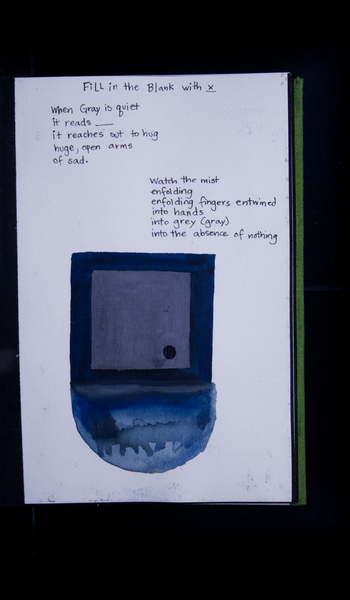 Fill in the Blank with x
When Gray is quiet
it reads ___
it reaches out to hug
huge, open arms
of sad.
Watch the mist
enfolding
enfolding fingers entwined
into hands
into grey (gray)
into the absence of nothing